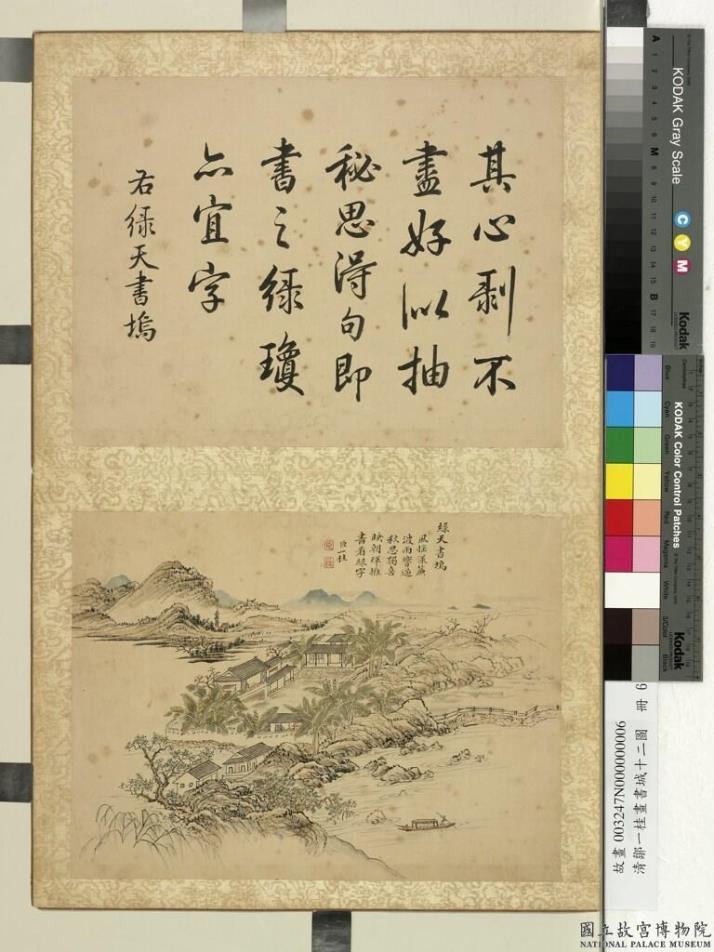 其心剥不
盡好似抽
秘思得句即
書之綠瓊
亦宜字
右綠天書塢
綠天書塢
波雨響逾
秋思獨喜
映朝暉推
書看綠字
一桂
A 1 2 3 4 5 6 M 8 9 10 11 12 13 14 15 B 17 18 19
KODAK Gray Scale
C Y M
Kodak
KODAK Color Control Patches
Blue
Cyan
Green
Yellow
Red
Magenta
White
3/Color
Black
Kodak
故畫 003247N000000006
清鄒一桂畫書城十二圖 冊 6
國立故宮博物院
NATIONAL PALACE MUSEUM